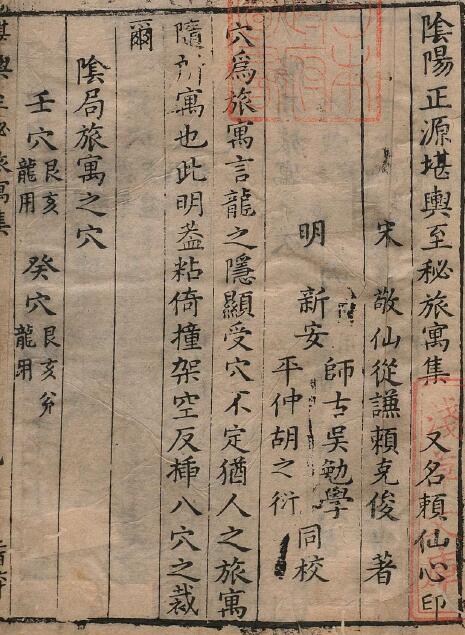 陰陽正源堪輿至秘旅寓集 又名賴仙心印
宋 敬仙從謙賴克俊 著
師古吳勉學
明 新安 同校
平仲胡之衍
穴為旅寓言龍之隱顯受穴不定猶人之旅寓
隨所寓也此明蓋粘倚撞架空反揷八穴之裁
爾
陰局旅寓之穴
壬穴艮亥龍用 癸穴艮亥兼龍用